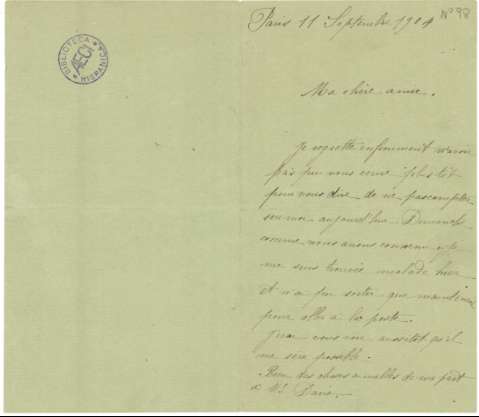 BIBLIOTECA HISPANICA
AECI
Nº 98
Paris 11 Septembre 1904
Ma chère amie,
Je regrette infiniment n'avoir
pas pu vous plus tôt
pour vous dire de ne pas compter
sur moi aujourd'hui Dimanche
comme nous avions convenu Je
me suis trouvée malade hier
et n'a pu sortir que maintenant
pour aller à la poste.
J'irai vous voir aussitot qu'il
me sera possible.
Bien des choses aimables de ma part
à